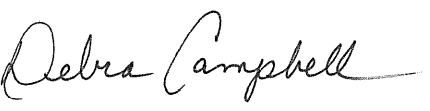 Debra Campbell